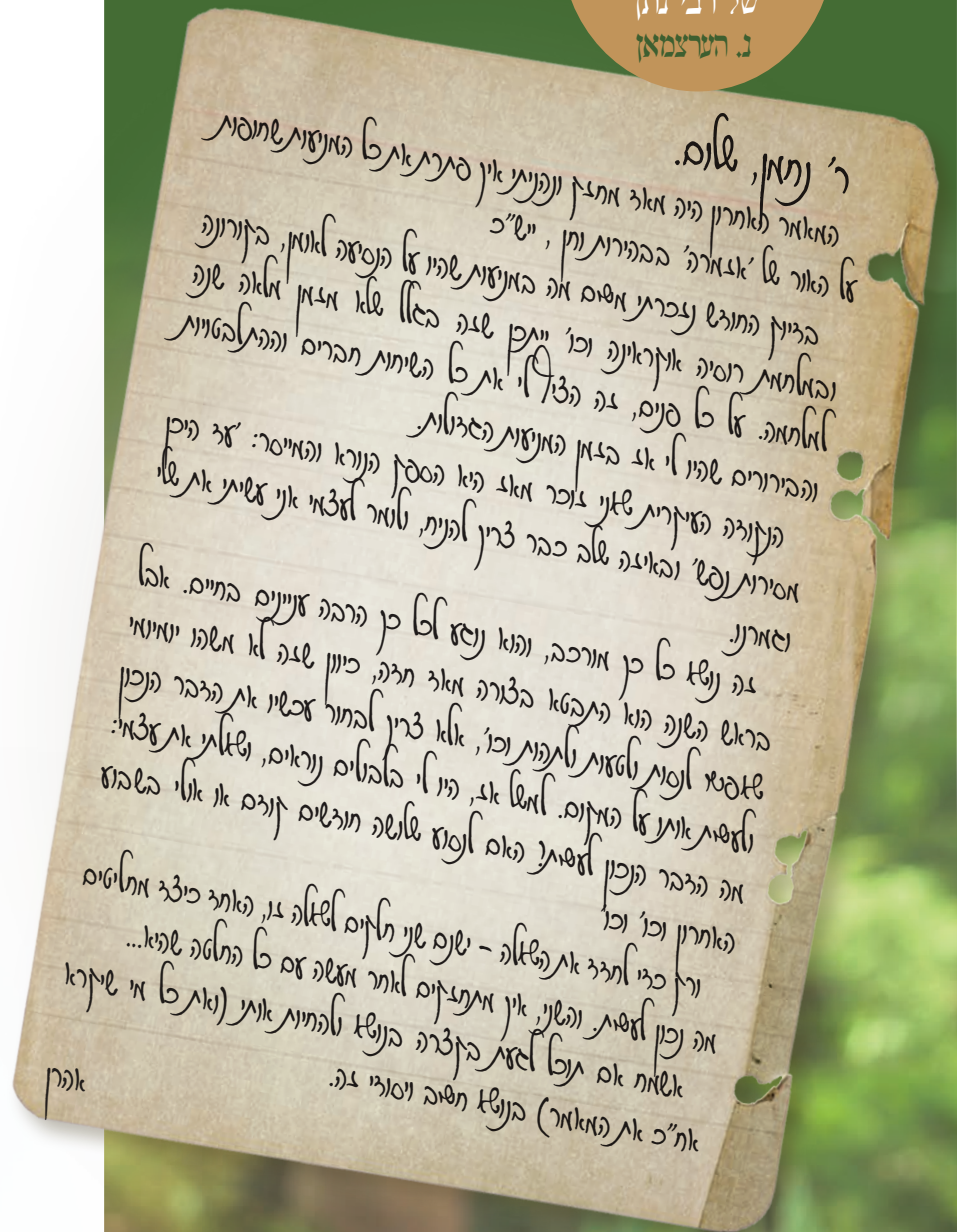 של רבי נתן
נ. הערצמאן
ר' נחמן, שלום.
המאמר האחרון היה מאד מחזק ונהניתי איך פתרת את כל המניעות שחופות
על האור של 'אזמרה' בבהירות וחן, יישי"כ
בדיוק החודש נזכרתי משום מה במניעות שהיו על הנסיעה לאומן, בקורונה
ובמלחמת רוסיה אוקראינה וכו' ייתכן שזה בגלל שלא מזמן מלאה שנה
למלחמה. על כל פנים, זה הציף לי את כל השיחות חברים וההתלבטויות
והבירורים שהיו לי אז בזמן המניעות הגדולות.
הנקודה העיקרית שאני זוכר מאז היא הספק הנורא והמייסר: 'עד היכן
מסירות נפש' ובאיזה שלב כבר צריך להניח, ולומר לעצמי אני עשיתי את שלי
וגמרנו.
זה נושא כל כך מורכב, והוא נוגע לכל כך הרבה עניינים בחיים. אבל
בראש השנה הוא התבטא בצורה מאד חדה, כיוון שזה לא משהו יומיומי
שאפשר לנסות ולטעות ולתהות וכו', אלא צריך לבחור עכשיו את הדבר הנכון
ולעשות אותו על המקום. למשל אז, היו לי בלבולים נוראים, ושאלתי את עצמי:
מה הדבר הנכון לעשות? האם לנסוע שלושה חודשים קודם או אולי בשבוע
האחרון וכו' וכו'
ורק כדי לחדד את השאלה – ישנם שני חלקים לשאלה זו, האחד כיצד מחליטים
מה נכון לעשות. והשני, איך מתחזקים לאחר מעשה עם כל החלטה שהיא...
אשמח אם תוכל לגעת בקצרה בנושא ולהחיות אותי (ואת כל מי שיקרא
אח"כ את המאמר) בנושא חשוב ויסודי זה.
אהרן